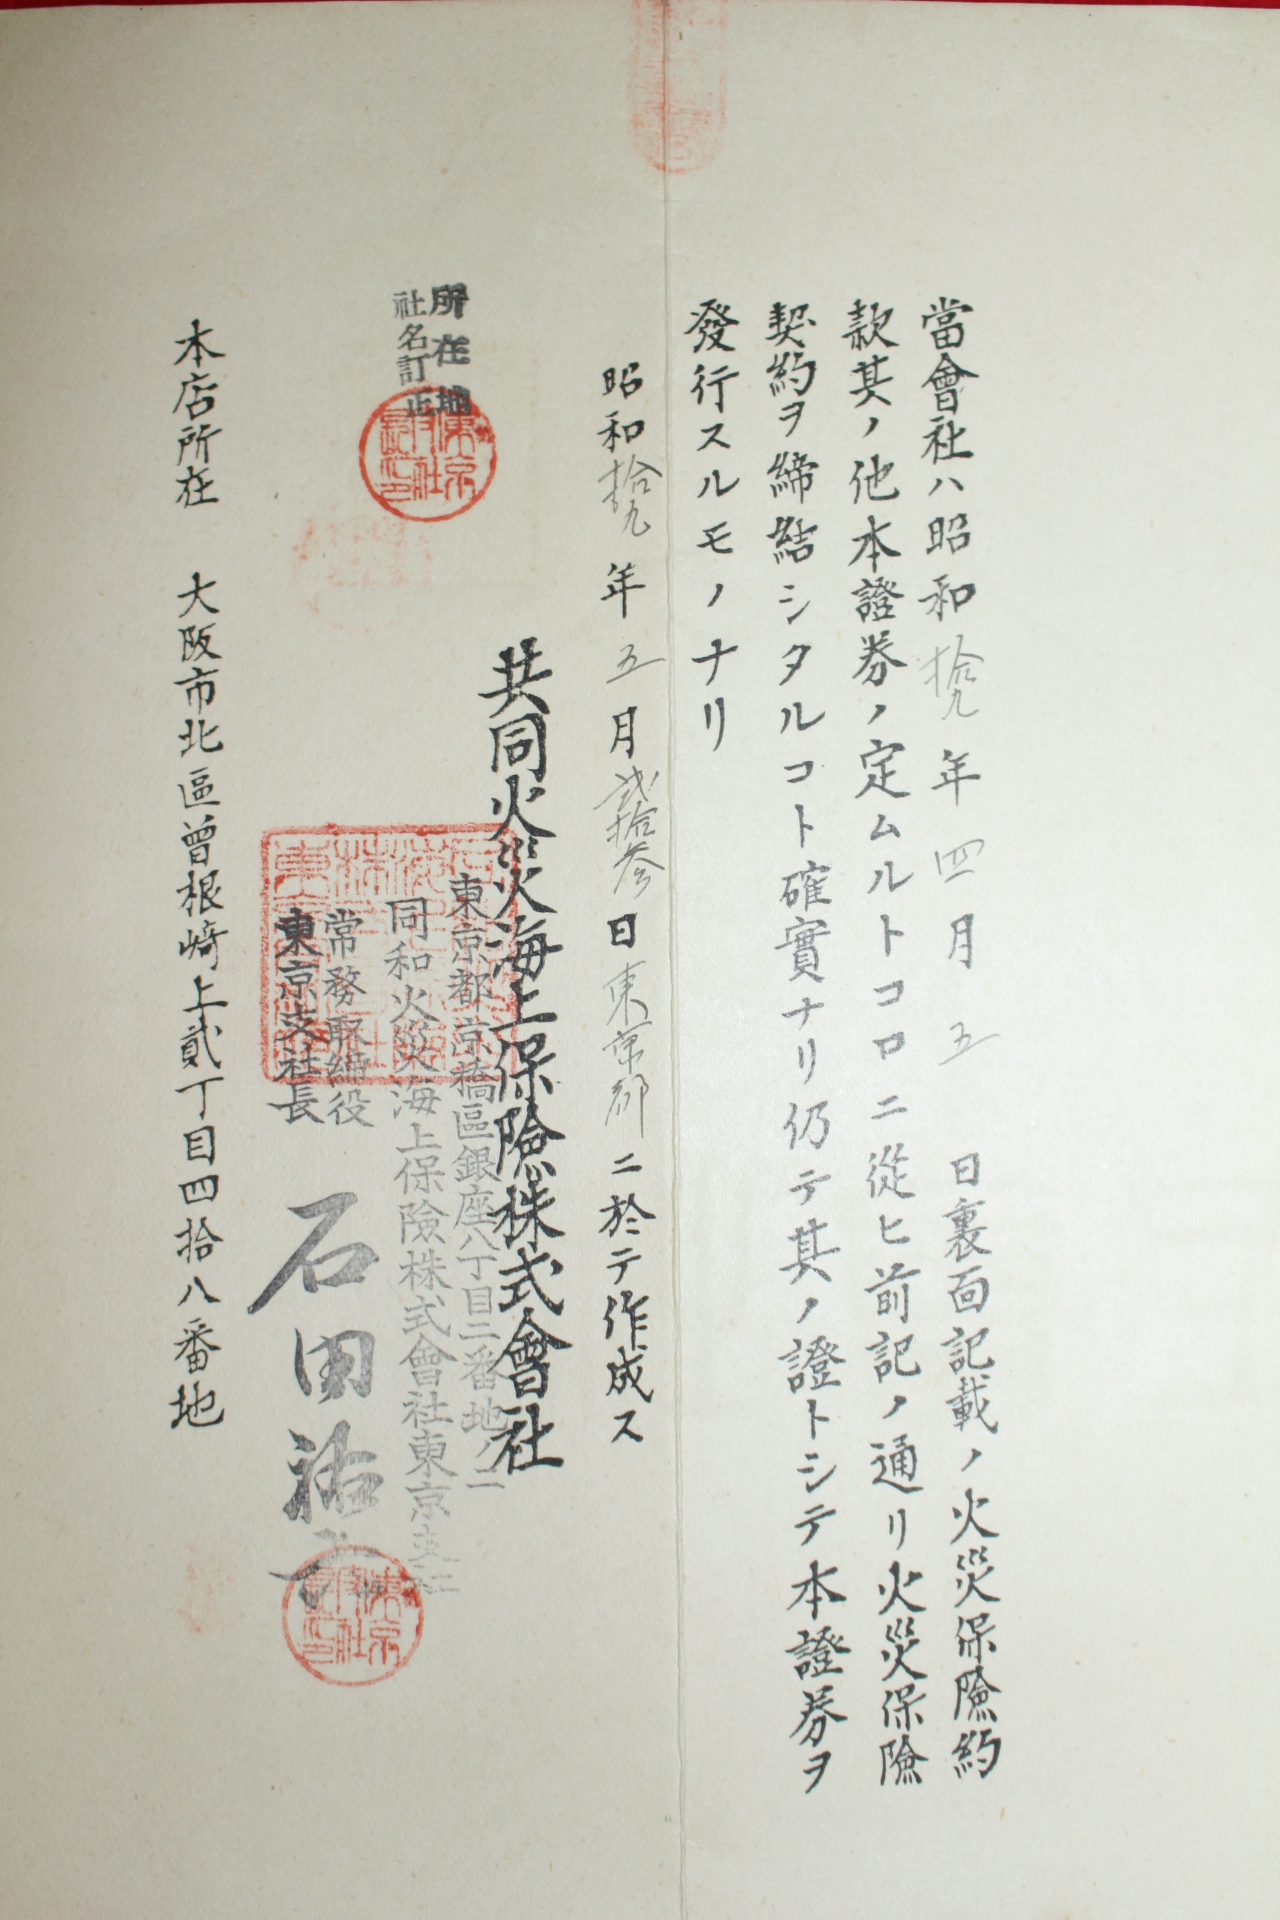 當會社ハ昭和拾九年四月五日裏面記載ノ火災保險約
款其ノ他本證券ノ定ムルトコロニ從ヒ前記ノ通リ火災保險
契約ヲ締結シタルコト確實ナリ仍テ其ノ證トシテ本證券ヲ
發行スルモノナリ
昭和拾九年五月貳拾參日東京都ニ於テ作成ス
共同火災海上保險株式會社
東京都京橋區銀座八丁目二番地ノ二
同和火災海上保險株式會社東京支社
常務取締役
東京支社長
石田祐六
所在地
社名訂正
東京支社長印
東京支社長印
本店所在 大阪市北區曾根崎上貳丁目四拾八番地